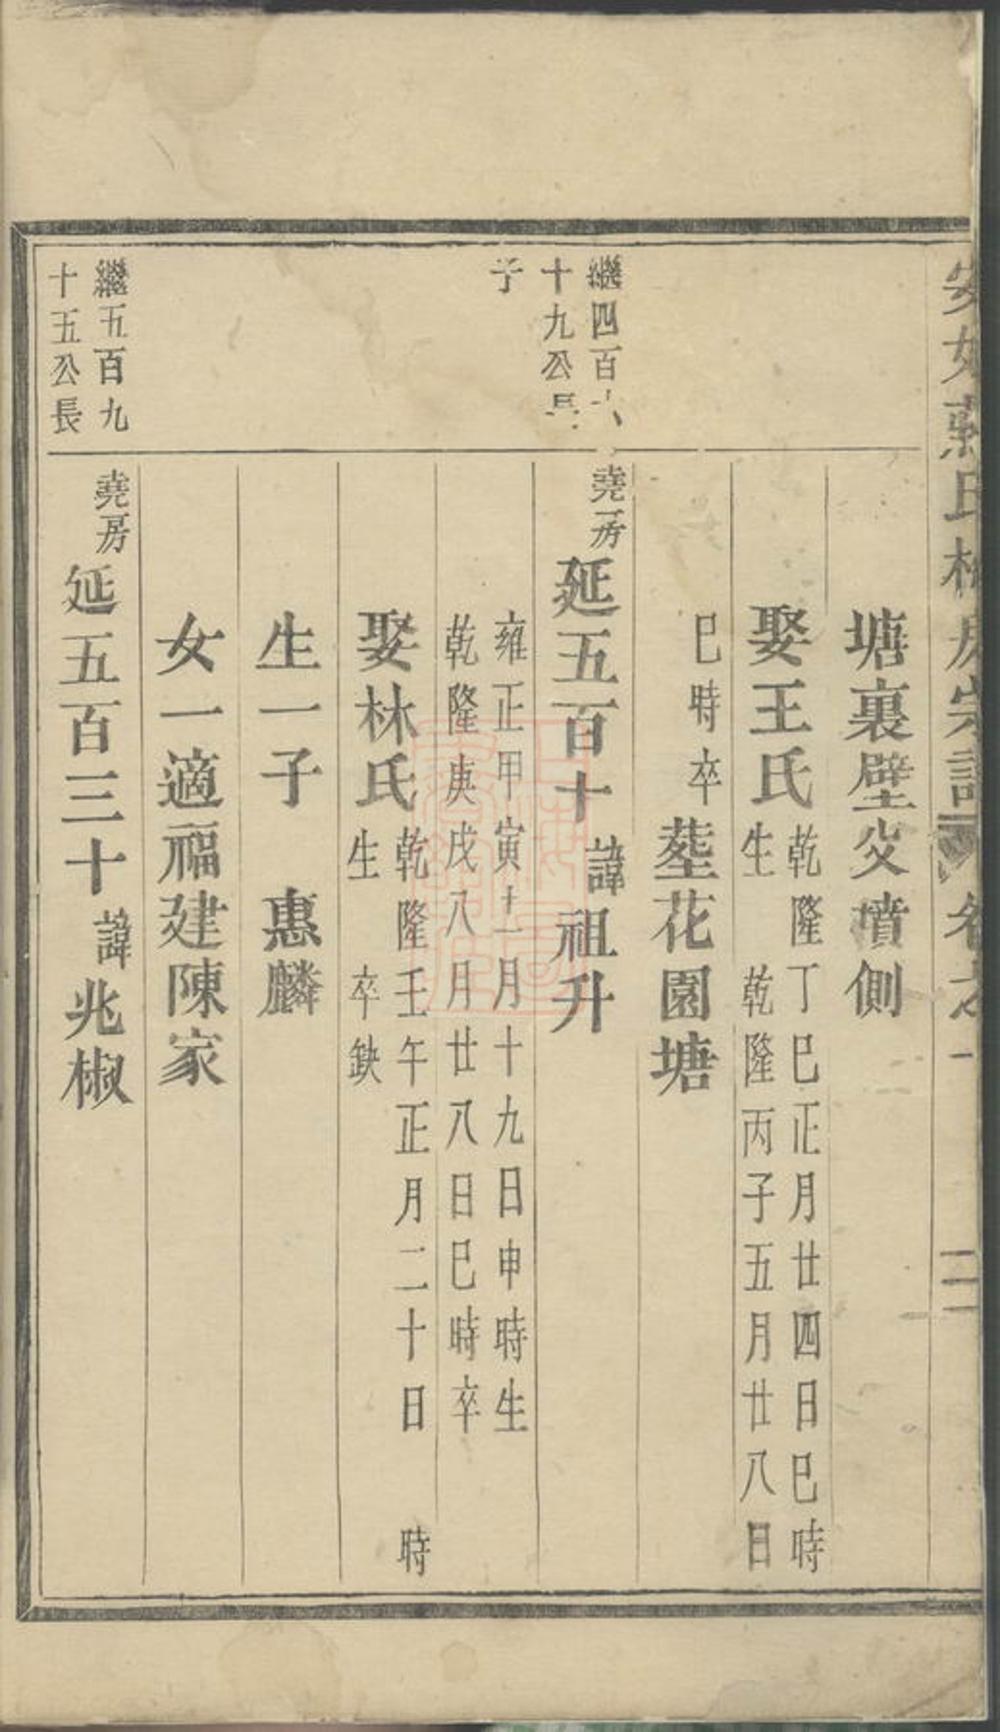 塘裏壁㕛墳側
娶王氏
乾隆丁巳正月廿四日巳時
生 乾隆丙子五月廿八日
巳時卒
塟花園塘
繼四百
十九公長
子
堯房
延五百十諱祖升
雍正甲寅十一月十九日申時生
乾隆庚戌八月廿八日巳時卒
娶林氏
乾隆壬午正月二十日 時
生 卒缺
生一子 惠麟
女一適福建陳家
繼五百九
十五公長
堯房
延五百三十諱兆椒